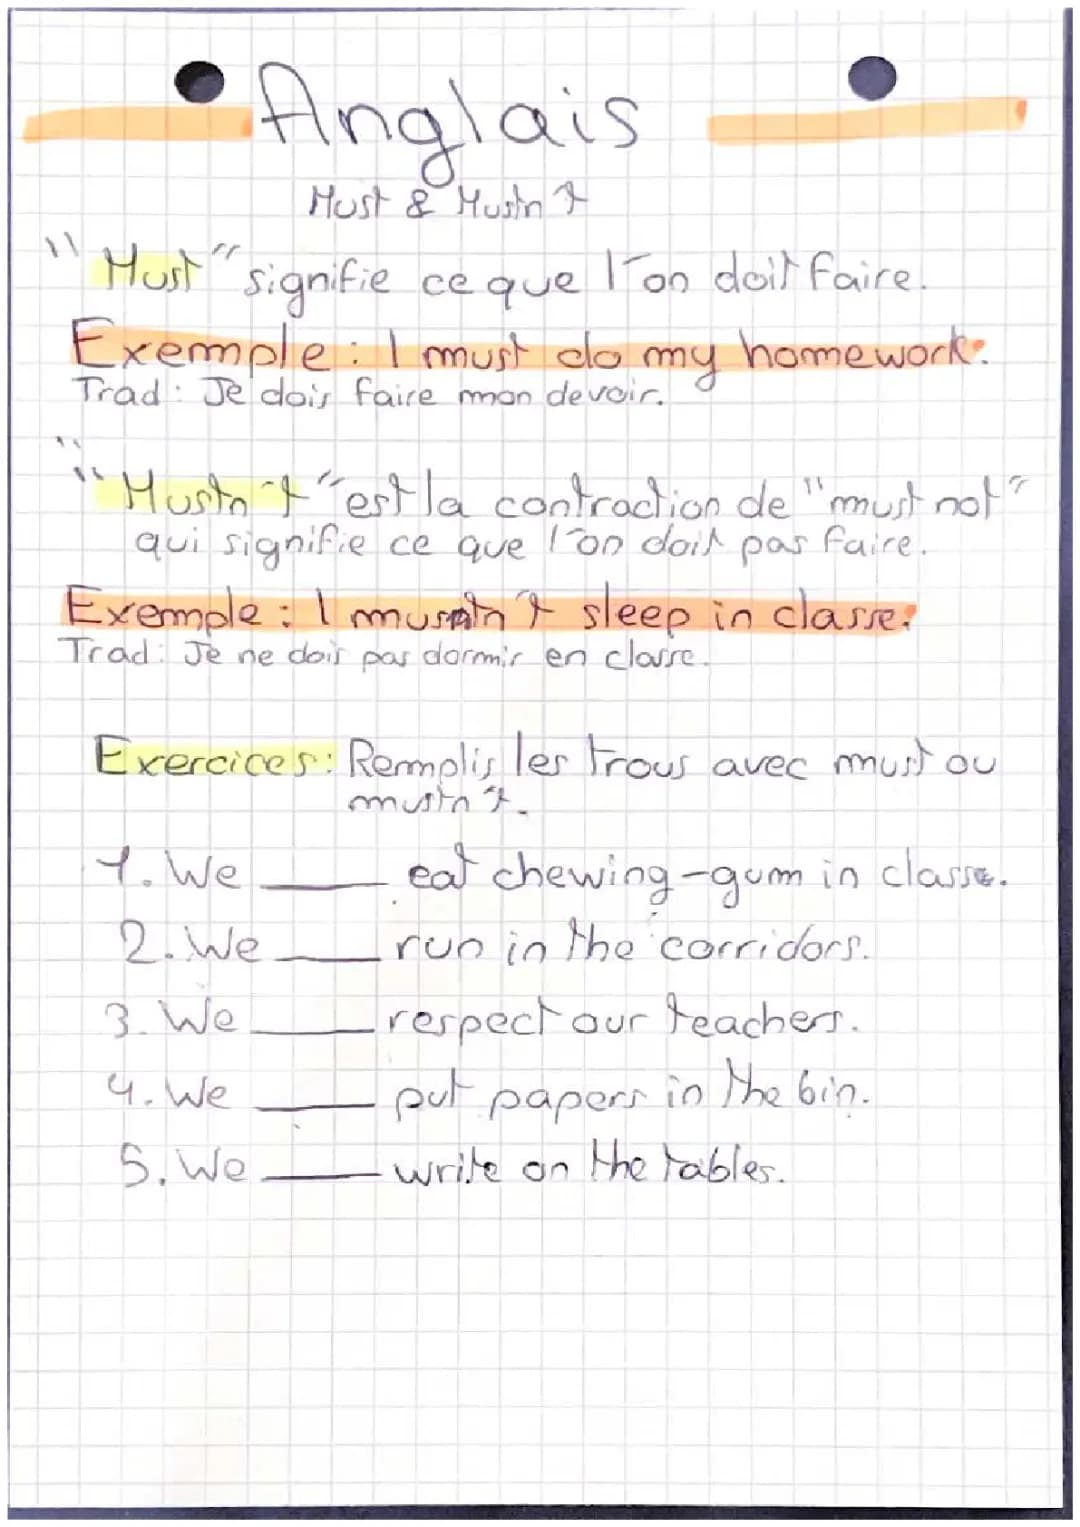 Anglais
Must & Mustn't
"Must" signifie ce que l'on doit faire.
Exemple : I must do my homework.
Trad : Je dois faire mon devoir.
"Mustn't" est la contraction de "must not"
qui signifie ce que l'on doit pas faire.
Exemple : I mustn't sleep in classe.
Trad : Je ne dois pas dormir en classe.
Exercices : Remplis les trous avec must ou
mustn't.
1. We ____ eat chewing-gum in classe.
2. We ____ run in the corridors.
3. We ____ respect our teachers.
4. We ____ put papers in the bin.
5. We ____ write on the tables.